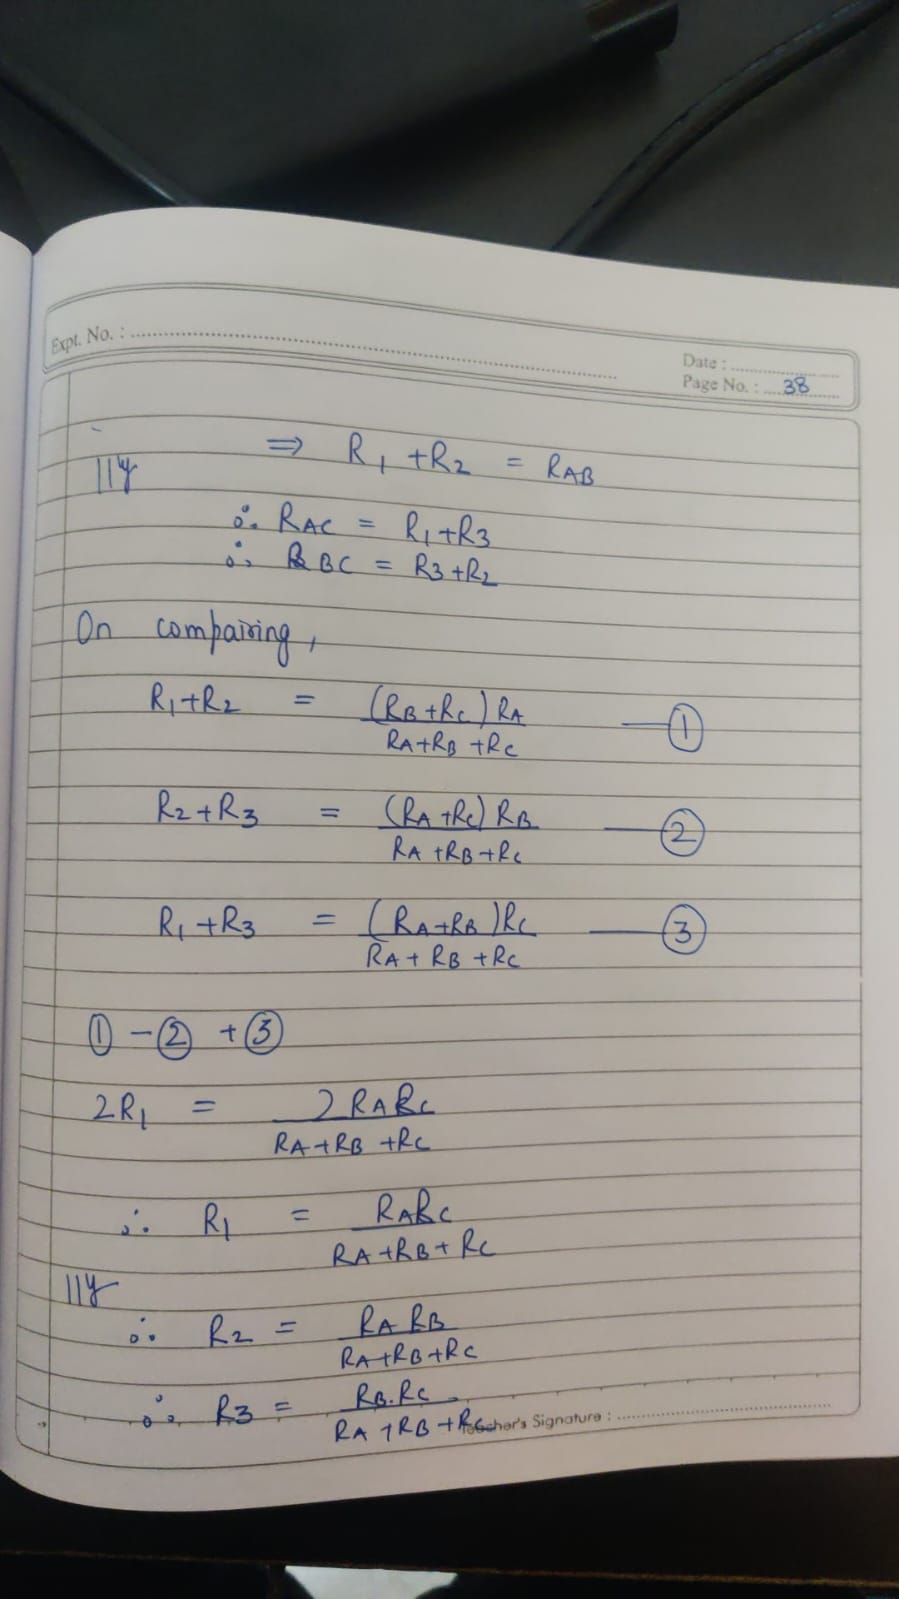 Expt. No. :
Date :
Page No. : 38
⇒ R₁ + R₂ = R_AB
111y
∴ R_AC = R₁ + R₃
∴ R_BC = R₃ + R₂
On compairing,
R₁ + R₂ = (R_B + R_C) R_A / R_A + R_B + R_C — ①
R₂ + R₃ = (R_A + R_C) R_B / R_A + R_B + R_C — ②
R₁ + R₃ = (R_A + R_B) R_C / R_A + R_B + R_C — ③
① - ② + ③
2R₁ = 2 R_A R_C / R_A + R_B + R_C
∴ R₁ = R_A R_C / R_A + R_B + R_C
111y
∴ R₂ = R_A R_B / R_A + R_B + R_C
∴ R₃ = R_B . R_C / R_A + R_B + R_C
Teacher's Signature :